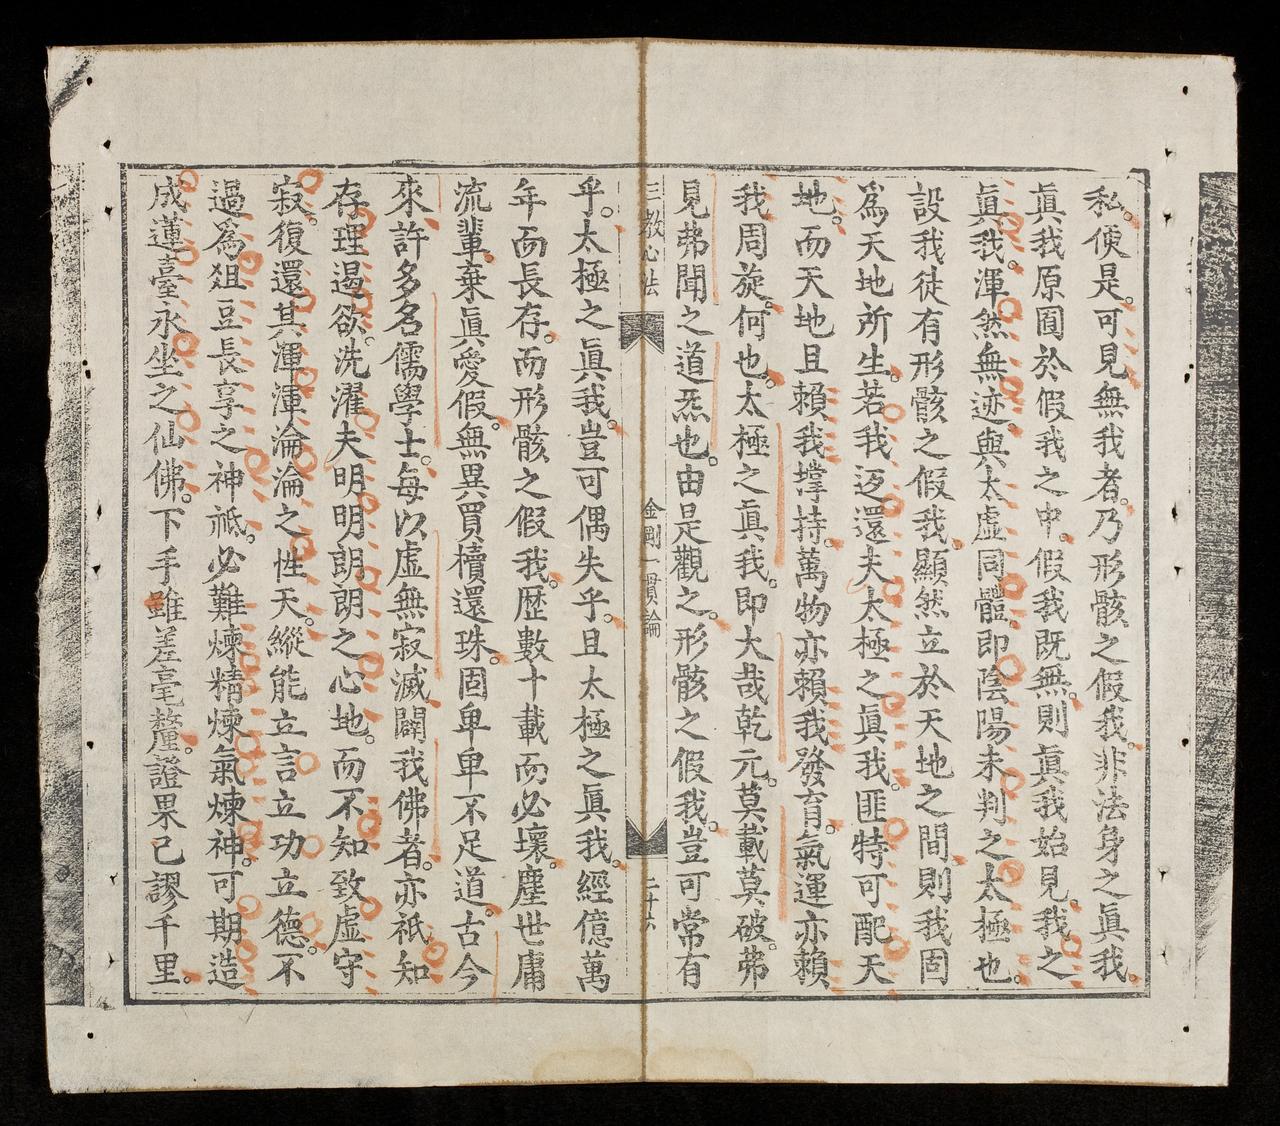 私。便是。可見無我者。乃形骸之假我。非法身之眞我。
眞我原囿於假我之中。假我既無。則眞我始見。我之
眞我。渾然無迹。與太虛同體。即陰陽未判之太極也。
設我徒有形骸之假我。顯然立於天地之間。則我固
爲天地所生。若我迓還夫太極之眞我。匪特可配天
地。而天地且賴我撐持。萬物亦賴我發育。氣運亦賴
我周旋。何也。太極之眞我。即大哉乾元。莫載莫破。弗
見弗聞之道炁也。由是觀之。形骸之假我。豈可常有
三教心法
金剛一貫論
二十六
乎。太極之眞我。豈可偶失乎。且太極之眞我。經億萬
年而長存。而形骸之假我。歷數十載而必壞。塵世庸
流輩。棄眞愛假。無異買櫝還珠。固卑卑不足道。古今
來許多名儒學士。每以虛無寂滅。闢我佛者。亦祇知
存理遏欲。洗濯夫明明朗朗之心地。而不知致虛守
寂。復還其渾渾淪淪之性天。縱能立言立功立德。不
過爲俎豆長享之神祗。必難煉精煉氣煉神。可期造
成蓮臺永坐之仙佛。下手雖差毫釐。證果已謬千里。